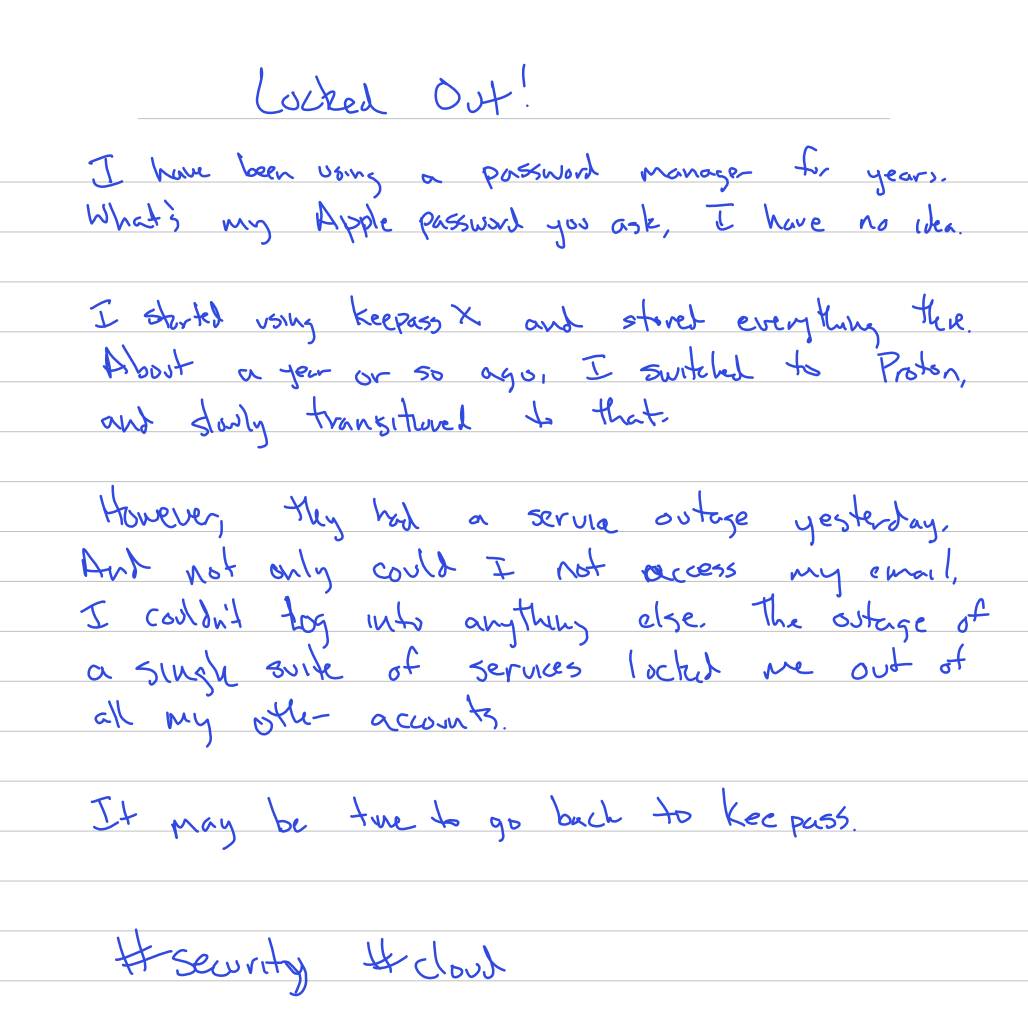 Locked Out!
I have been using a password manager for years.
What's my Apple password you ask, I have no idea.
I started using KeepassX and stored everything there.
About a year or so ago, I switched to Proton,
and slowly transitioned to that.
However, they had a service outage yesterday.
And not only could I not access my email,
I couldn't log into anything else. The outage of
a single suite of services locked me out of
all my other accounts.
It may be time to go back to Keepass.
#security #cloud